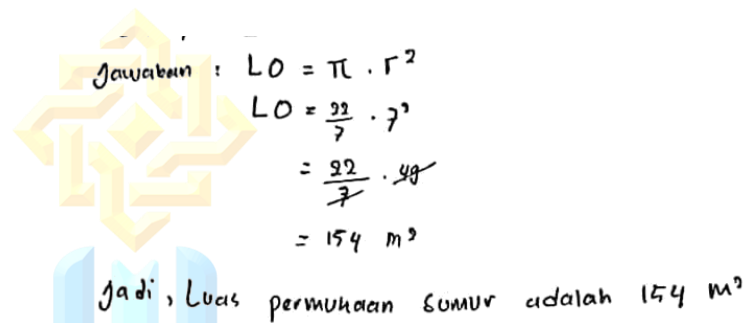 Jawaban : LO = π . r²
LO = 22/7 . 7²
= 22/7 . 49
= 154 m²
Jadi, Luas permukaan sumur adalah 154 m²